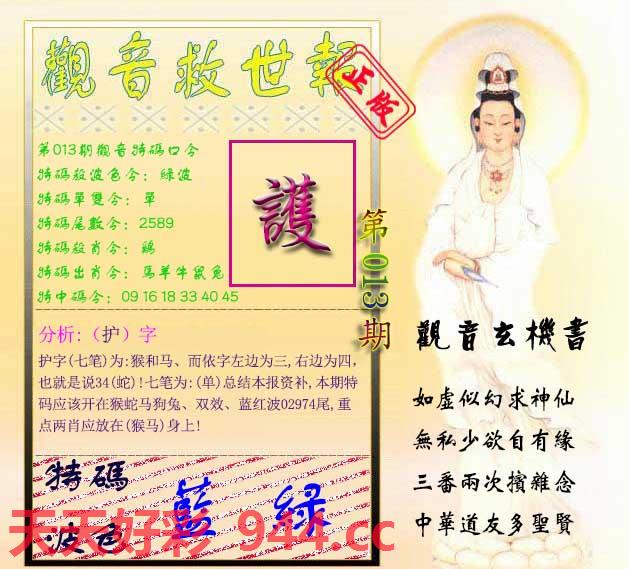 觀音救世報
正版
第013期觀音特碼口令
特碼殺波色令：綠波
特碼單雙令：單
特碼尾數令：2589
特碼殺肖令：鷄
特碼出肖令：馬羊牛鼠兔
特中碼令：09 16 18 33 40 45
護
第013期
分析:（护）字
护字(七笔)为:猴和马、而依字左边为三,右边为四,
也就是说34(蛇)!七笔为:(单)总结本报资补,本期特
码应该开在猴蛇马狗兔、双效、蓝红波02974尾,重
点两肖应放在(猴马)身上!
特碼
波色
藍 綠
天天好彩 944.cc
觀音玄機書
如虛似幻求神仙
無私少欲自有緣
三番兩次擯雜念
中華道友多聖賢